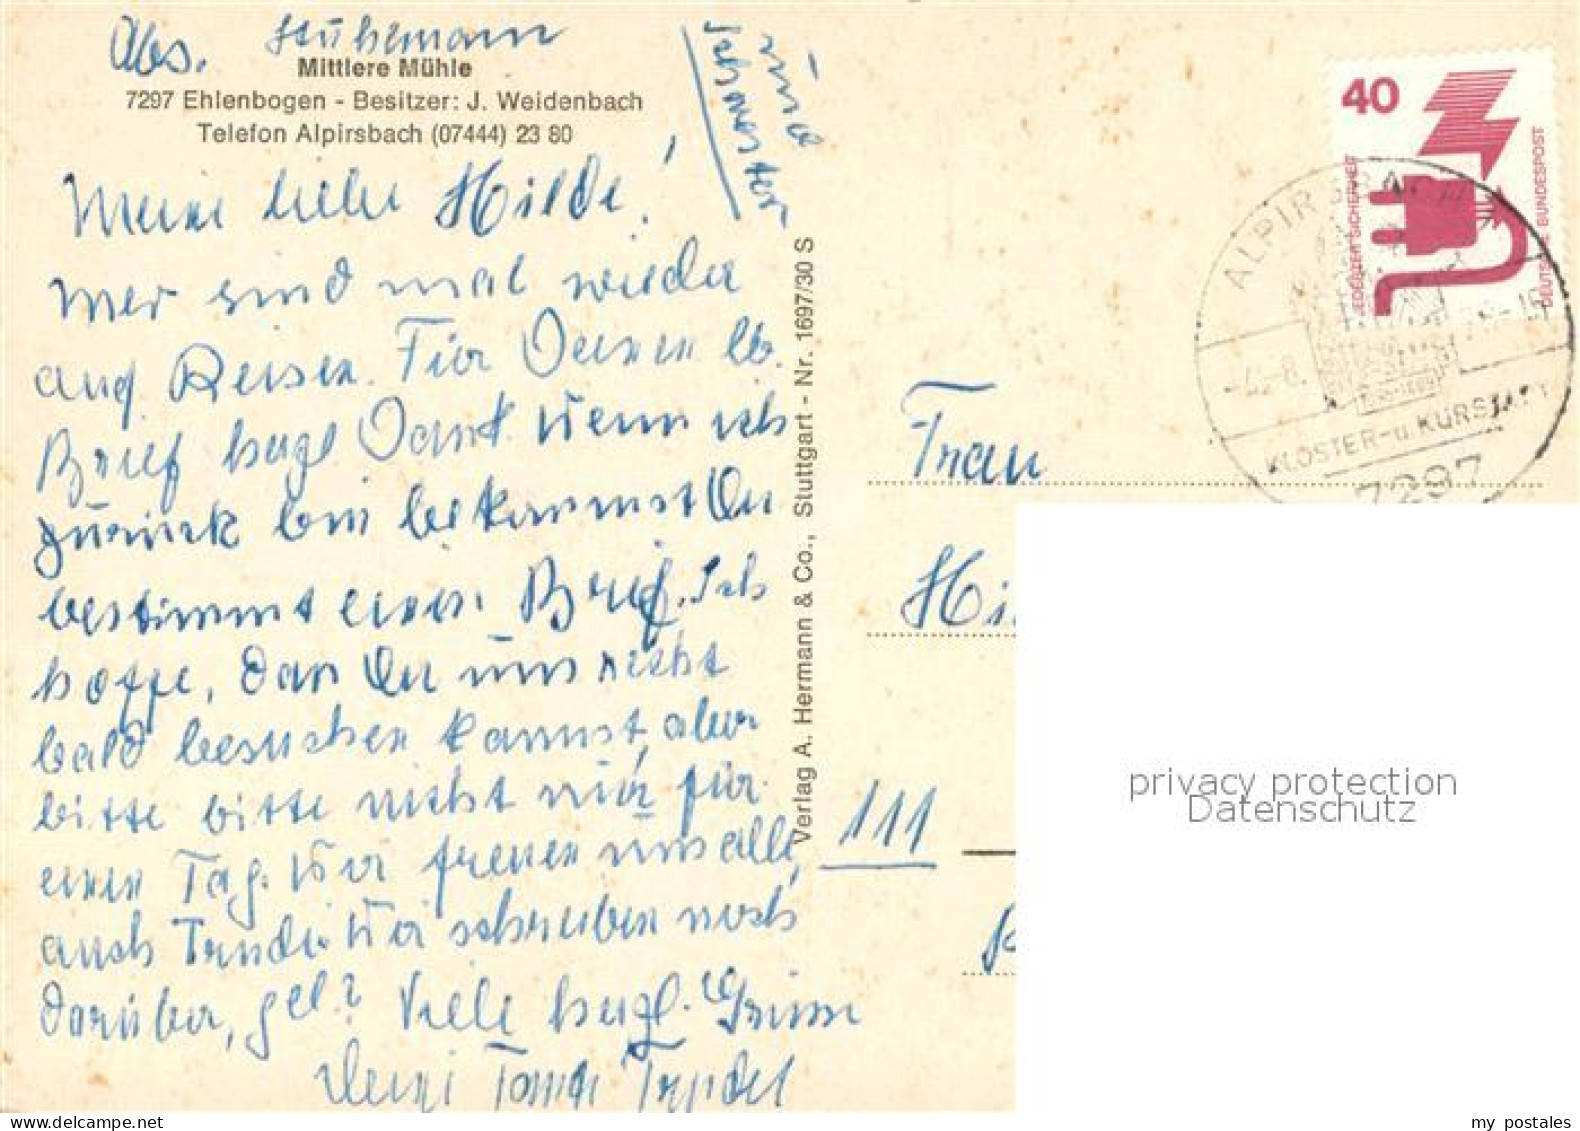 Abs. Stühemann
Mittlere Mühle
7297 Ehlenbogen - Besitzer: J. Weidenbach
Telefon Alpirsbach (07444) 23 80
und
Schwester
Meine liebe Hilde!
Wir sind mal wieder
auf Reisen. Für Deinen lb.
Brief herzl Dank. Wenn ich
zurück bin bekommst Du
bestimmt einen Brief. Ich
hoffe, das Du uns recht
bald besuchen kannst, aber
bitte bitte nicht nur für
einen Tag. Wir freuen uns alle,
auch Trude. Wir schreiben noch
darüber, gel? Viele herzl. Grüsse
Deine Tante Trudel
Verlag A. Hermann & Co., Stuttgart - Nr. 1697/30 S
40
JEDERZEIT SICHERHEIT
DEUTSCHE BUNDESPOST
ALPIRSBACH
-4.-8.
KLOSTER- u. KURSTADT
7297
Frau
Hi
111
privacy protection
Datenschutz
my postales